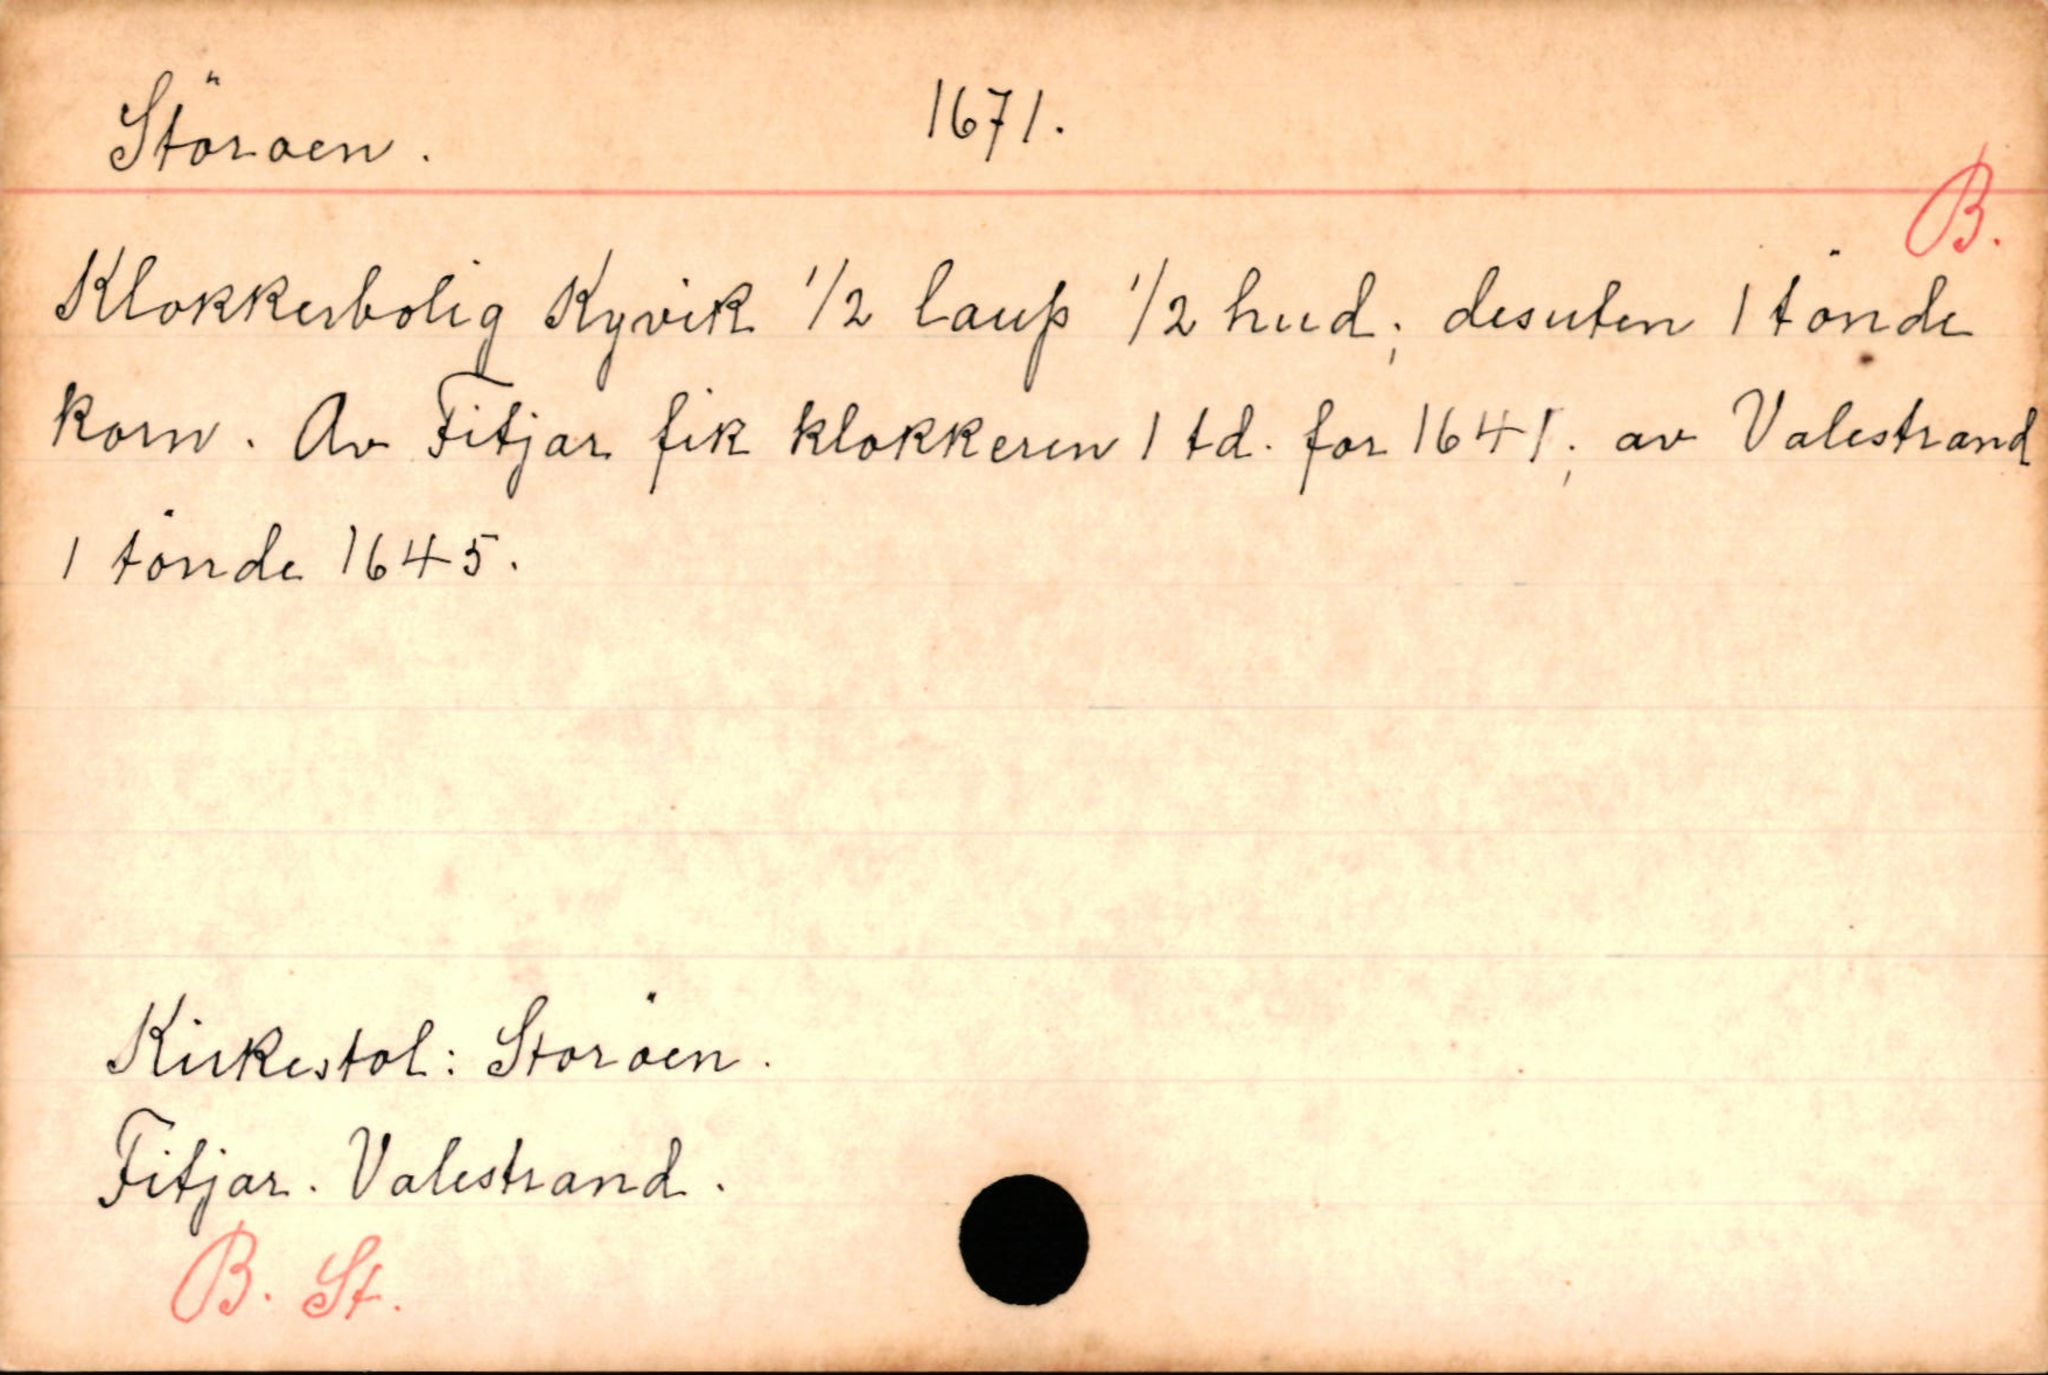 Störoen. 1671.
B.
Klokkerbolig Kyvik 1/2 laup 1/2 hud; desuten 1 tönde
korn. Av Fitjar fik klokkeren 1 td. for 1641; av Valestrand
1 tönde 1645.
Kirkestol: Storöen.
Fitjar. Valestrand.
B. St.